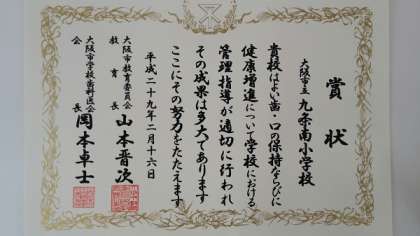 賞状
大阪市立 九条南小学校
貴校はよい歯・口の保持ならびに
健康増進について学校における
管理指導が適切に行われ
その成果は多大であります
ここにその努力をたたえます
平成二十九年二月十六日
大阪市教育委員会
教育長 山本晋次
大阪市学校歯科医会
会長 岡本卓士